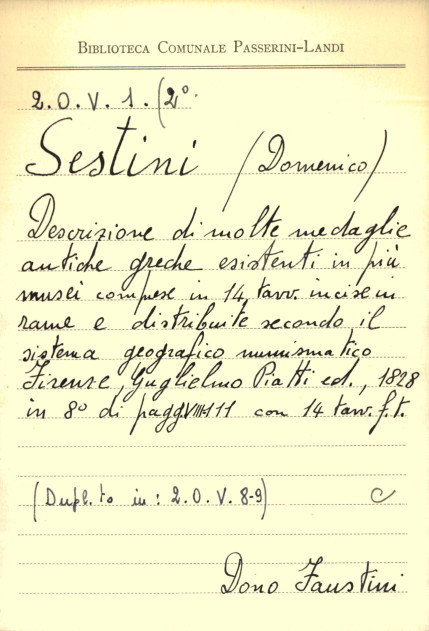 Biblioteca Comunale Passerini-Landi
2.O.V.1.(2°
Sestini (Domenico)
Descrizione di molte medaglie
antiche greche esistenti in più
musei comprese in 14 tavv. incise in
rame e distribuite secondo il
sistema geografico numismatico
Firenze, Guglielmo Piatti ed., 1828
in 8° di pagg. VIII-111 con 14 tavv. f.t.
(Dupl.to in: 2.O.V.8-9) C
Dono Faustini